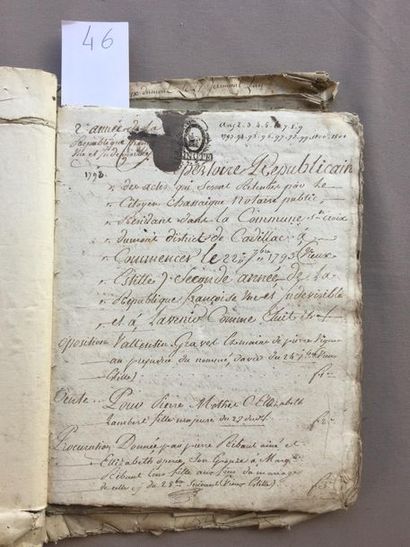 46
2e année de la
République
une et indivisible
1793
ans 2. 3. 4. 5. 6. 7. 8. 9
1793. 94. 95. 96. 97. 98. 99. 1800. 1801
Repertoire Republicain
des actes qui seront retenus par le
Citoyen Chassaigne notaire public,
Residant dans la Commune Ste Croix
dumont district de Cadillac, à
Commencer le 22e 7bre 1793 (vieux
Stille) Seconde année de la
République françoise une et indivisible
et à Lavenir Comme Suit
opposition Vallentin Gravet
au préjudice du nommé David du 25 7bre vieux
Stille)
Vente Pour Pierre Mothe C. Elizabeth
Lambert fille majeure du 27 dud.
Procuration Donnée par pierre Ribaut ainé et
Elizabeth épouse
Ribaut leur fille aux fins du mariage
de celle cy du 28e Suivant (vieux Stille)